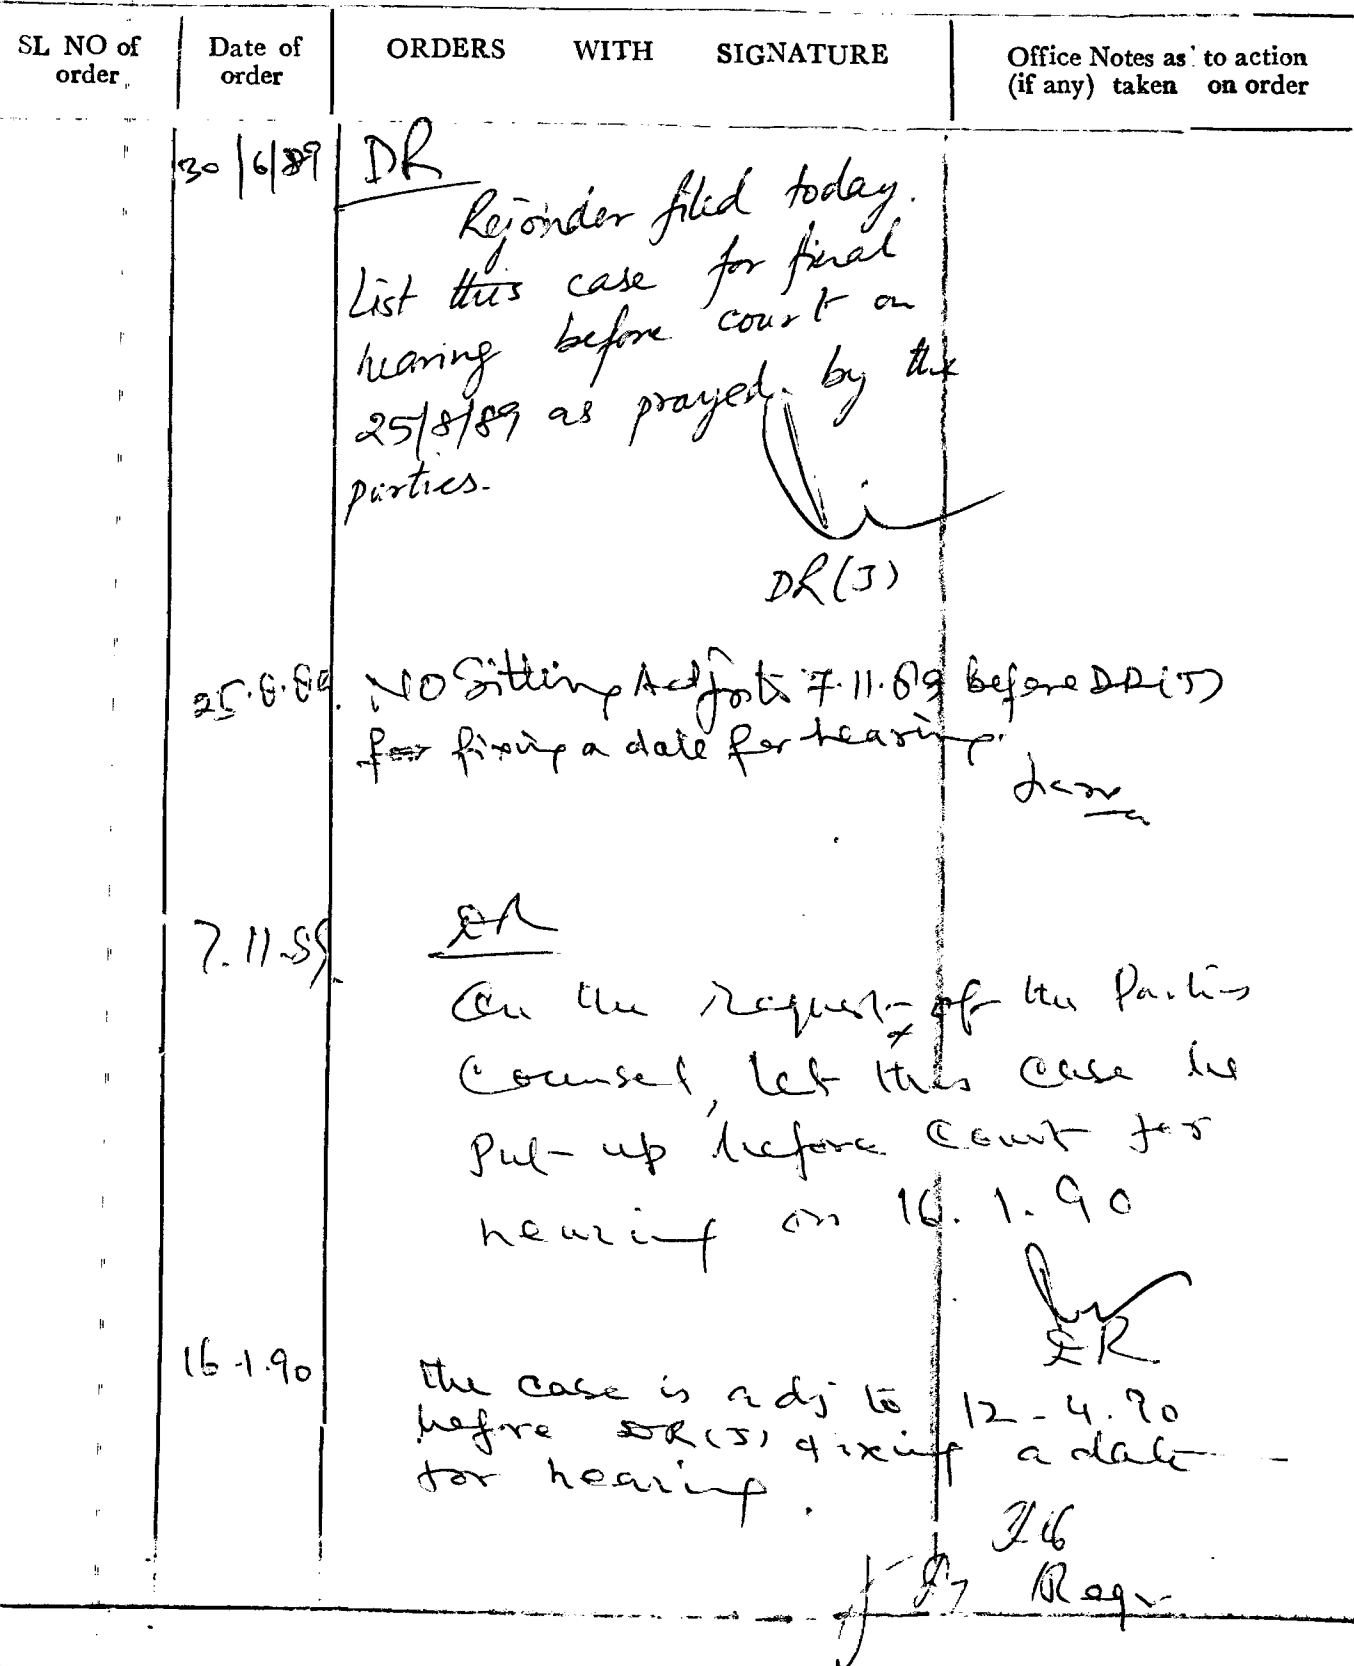 SL NO of order
Date of order
ORDERS WITH SIGNATURE
Office Notes as to action (if any) taken on order
30/6/89
DR
Rejoinder filed today.
List this case for final
hearing before court on
25/8/89 as prayed by the
parties.
DR(J)
25.8.89. NO Sitting Adj to 7.11.89 before DR(J)
for fixing a date for hearing.
7.11.89.
DR
On the request of the Parties
Counsel, let this case be
Put-up before Court for
hearing on 16.1.90
DR
16.1.90
the case is adj to 12-4.90
before DR(J) fixing a date
for hearing.